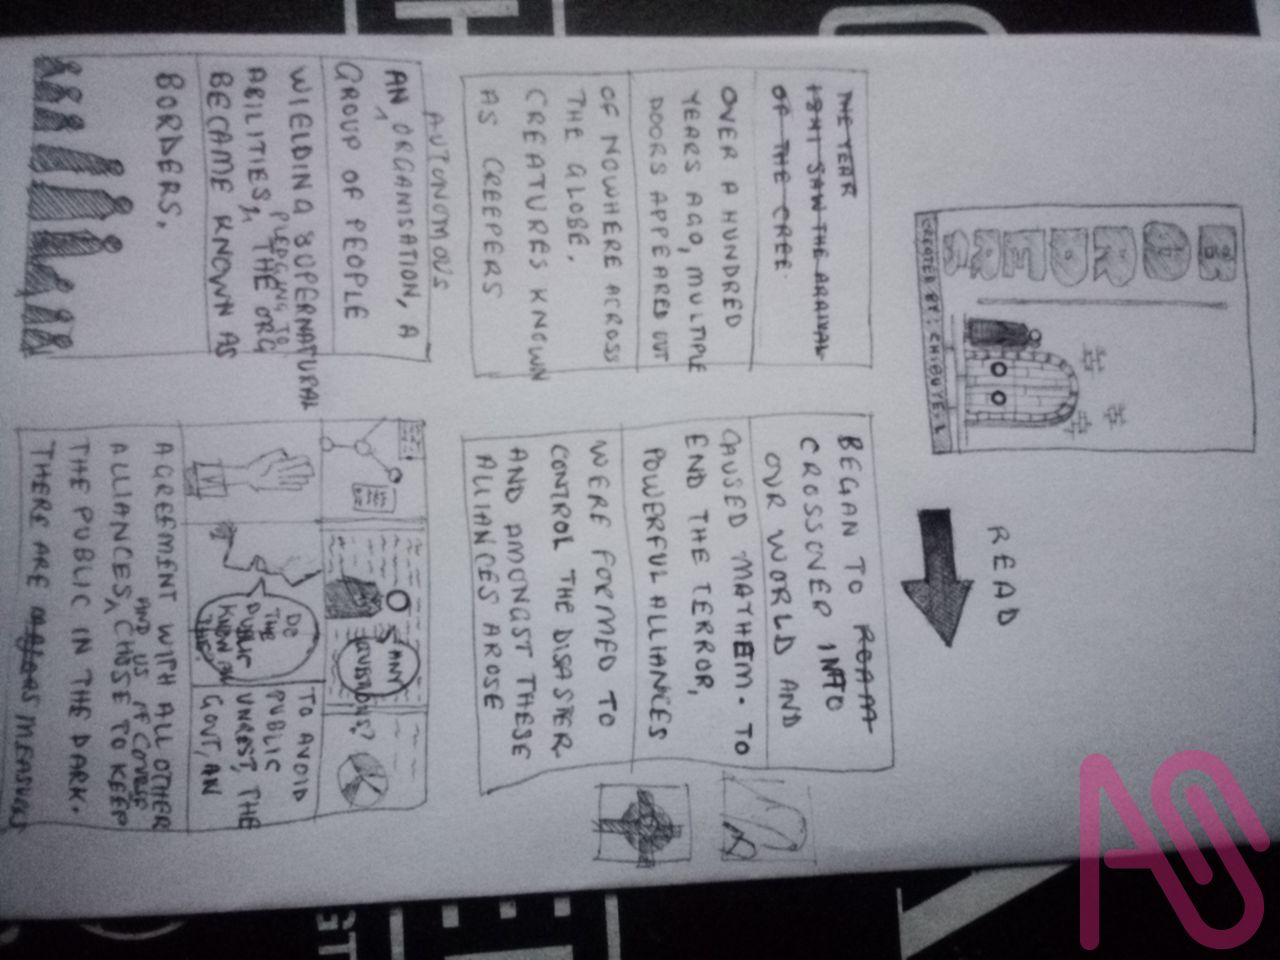 BORDERS
CREATED BY: CHIBUYE.L
READ
THE YEAR
SAW THE ARRIVAL
OF THE CREE
OVER A HUNDRED
YEARS AGO, MULTIPLE
DOORS APPEARED OUT
OF NOWHERE ACROSS
THE GLOBE.
CREATURES KNOWN
AS CREEPERS
BEGAN TO
CROSSOVER INTO
OUR WORLD AND
CAUSED MAYHEM. TO
END THE TERROR,
POWERFUL ALLIANCES
WERE FORMED TO
CONTROL THE DISASTER
AND AMONGST THESE
ALLIANCES AROSE
AUTONOMOUS
AN ORGANISATION, A
GROUP OF PEOPLE
WIELDING SUPERNATURAL
PLEDGING TO
ABILITIES, THE ORG
BECAME KNOWN AS
BORDERS.
ANY
QUESTIONS?
DO
THE
PUBLIC
KNOW
THIS?
TO AVOID
PUBLIC
UNREST, THE
GOVT, AN
AGREEMENT WITH ALL OTHER
AND US
ALLIANCES, CHOSE TO KEEP
THE PUBLIC IN THE DARK.
THERE ARE MEASURES